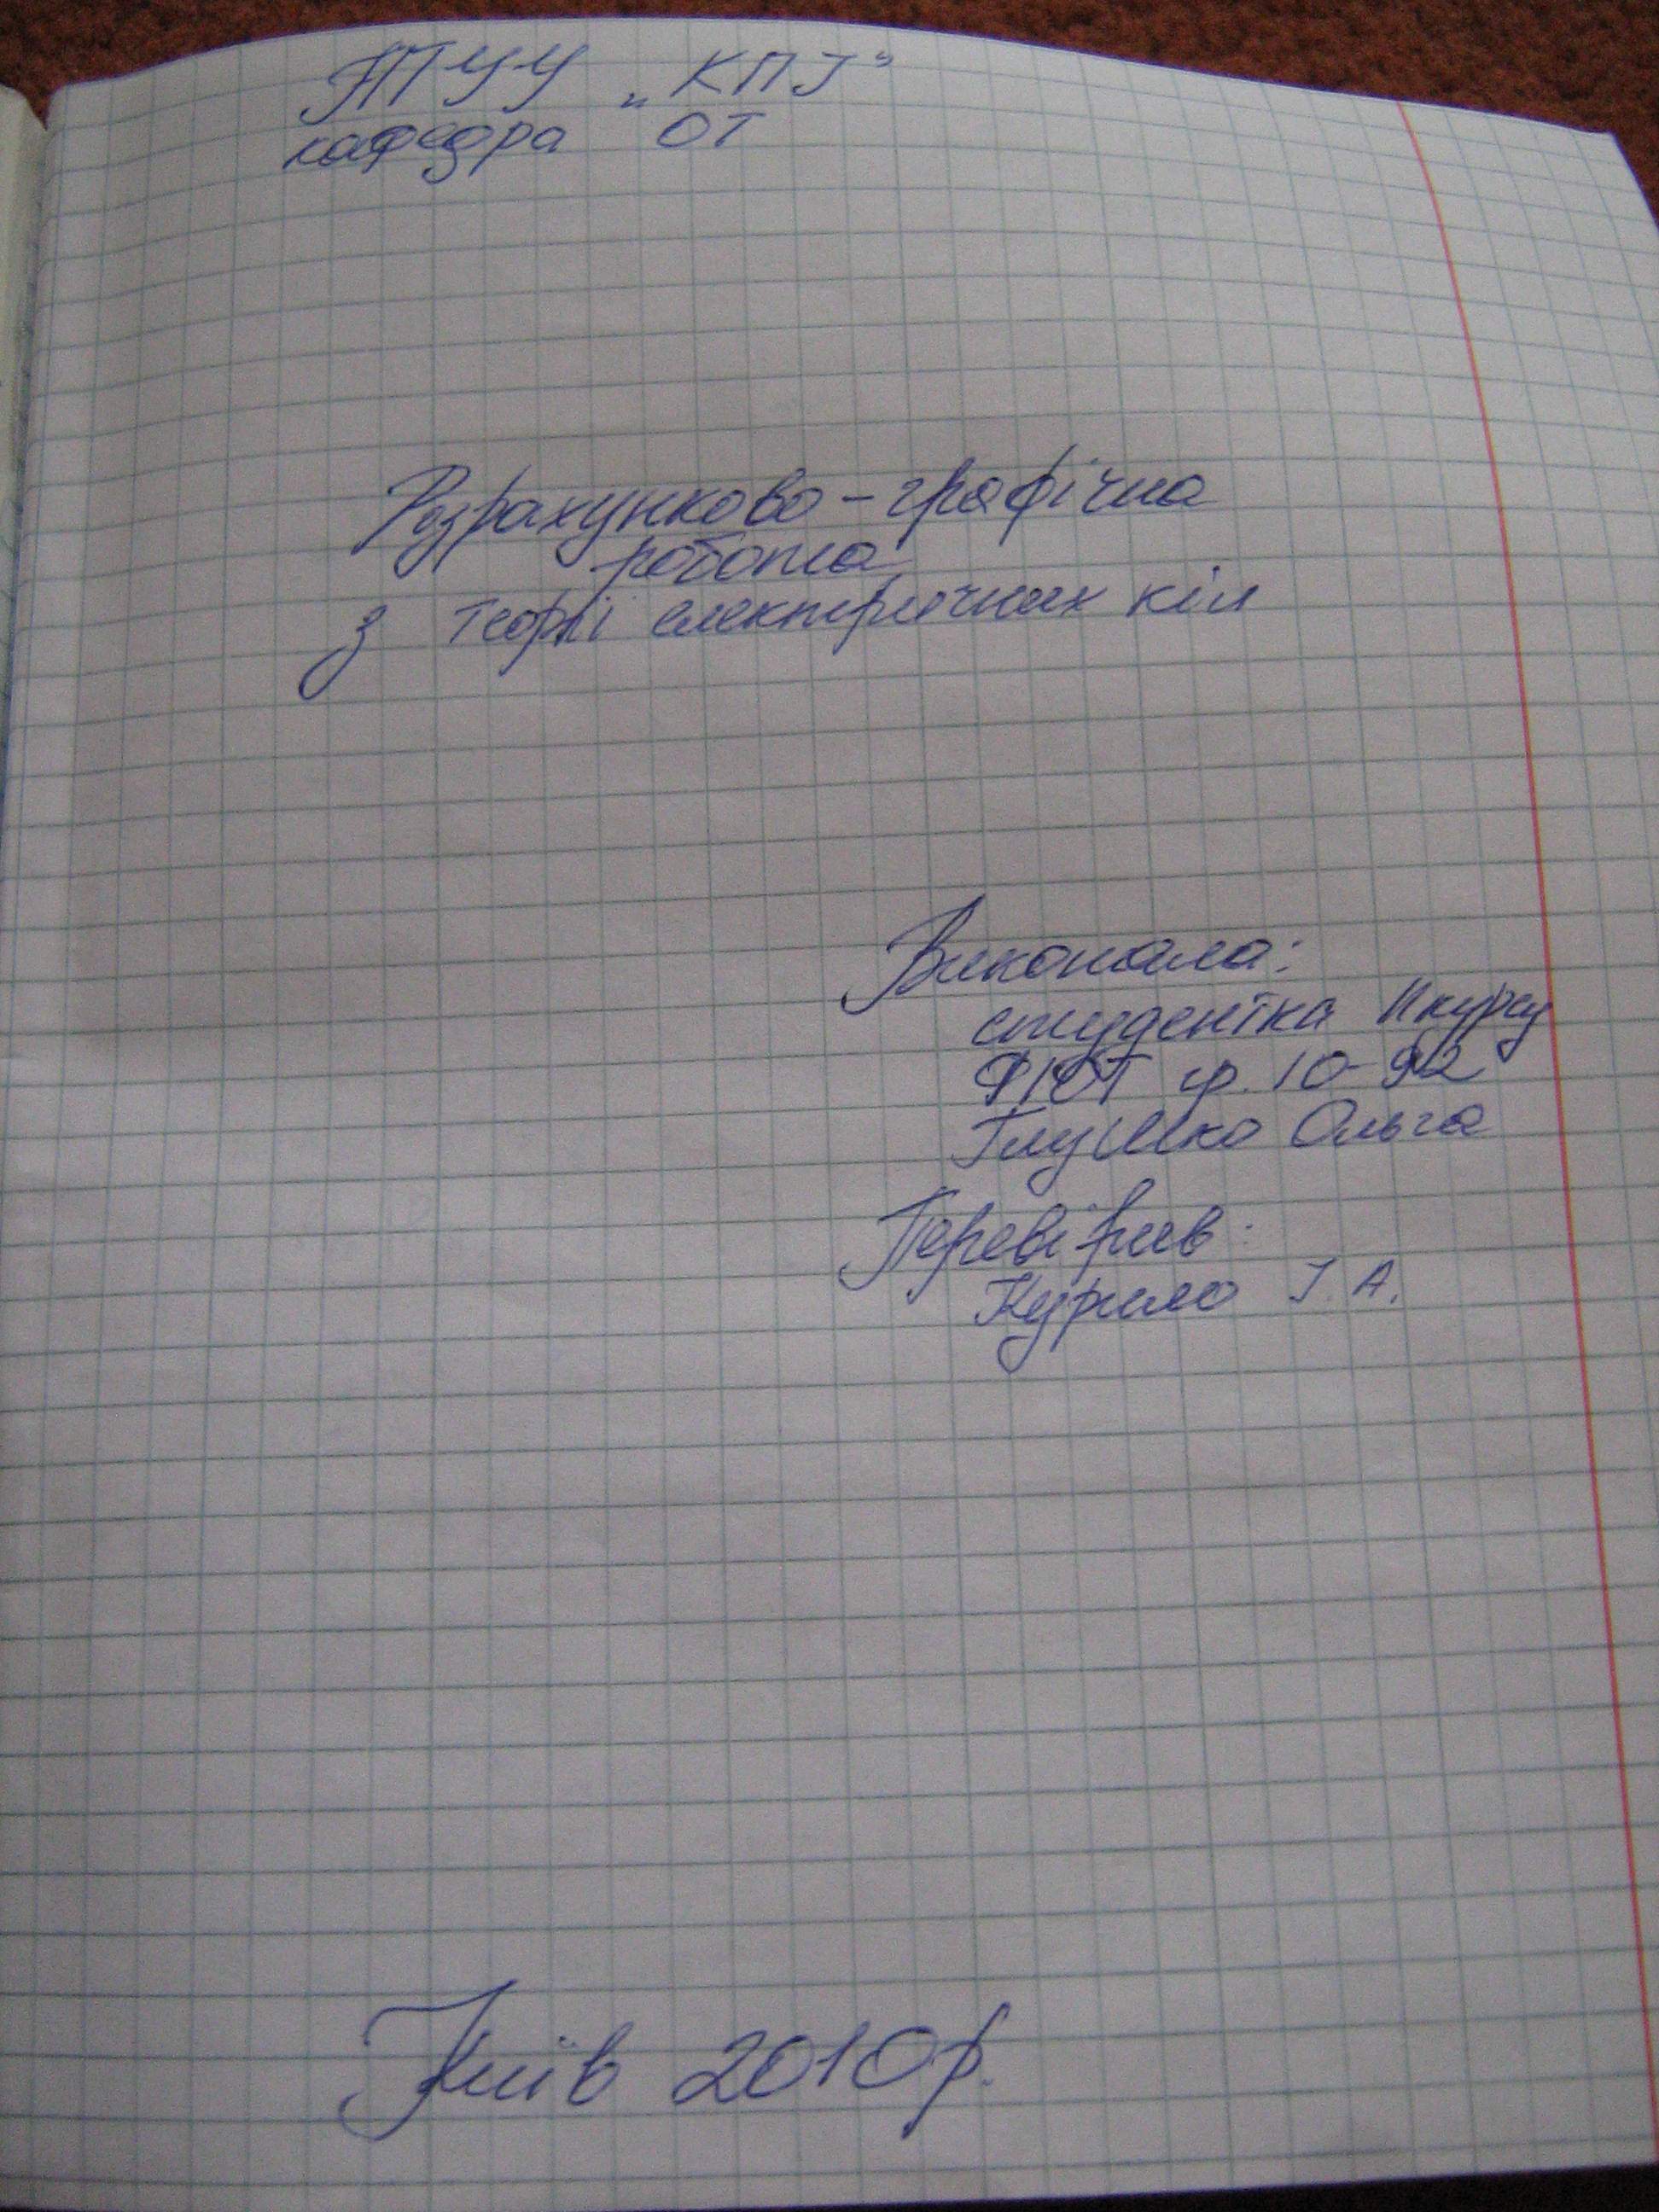 НТУУ „КПІ"
кафедра ОТ
Розрахунково-графічна
робота
з теорії електричних кіл
Виконала:
студентка II курсу
ФІОТ гр. ІО-92
Глушко Ольга
Перевірив:
Курило І. А.
Київ 2010р.